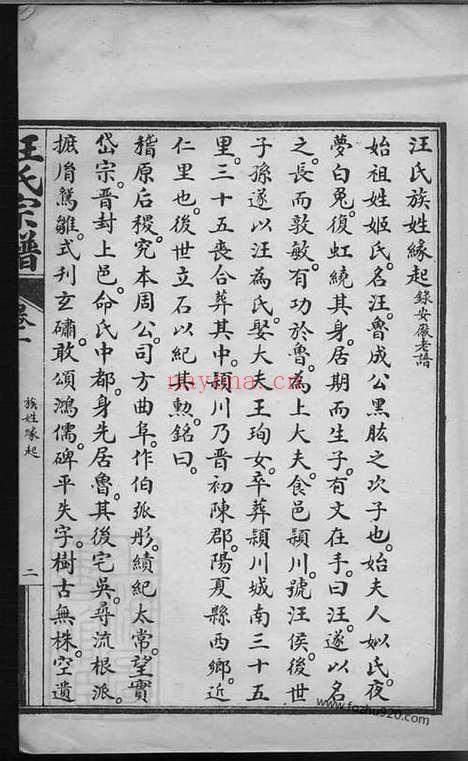 汪氏族姓緣起 錄安徽老譜
始祖姓姬氏。名汪。魯成公黑肱之次子也。始夫人姒氏。夜
夢白兔。復虹繞其身。居期而生子。有文在手。曰汪。遂以名
之。長而敦敏。有功於魯。為上大夫。食邑潁川。號汪侯。後世
子孫遂以汪為氏。娶大夫王珣女。卒葬潁川城南三十五
里。三十五喪合葬其中。潁川乃晉初陳郡陽夏縣西鄉。近
仁里也。後世立石以紀其勲。銘曰。
稽原后稷。究本周公。司方曲阜。作伯弤彤。績紀太常。望實
岱宗。晉封上邑。命氏中都。身先居魯。其後宅吳。尋流根派。
摭脩鴛雛。式刊玄礵。敢頌鴻儒。碑平失字。樹古無株。空遺
汪氏宗譜
卷一
族姓緣起
二
nayana.cn
www.fozhu920.com